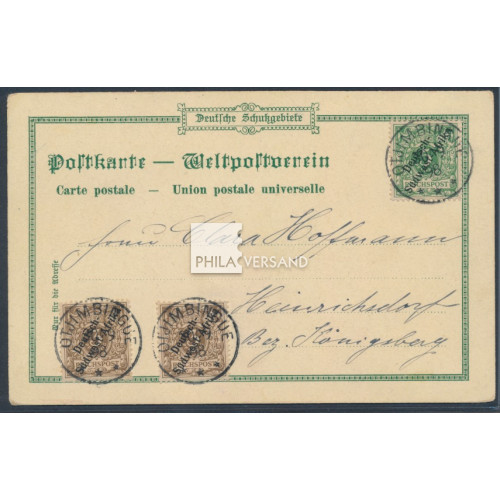 Deutsche Schutzgebiete
Postkarte — Weltpostverein
Carte postale — Union postale universelle
Nur für die Adresse
OTJIMBINGUE
Deutsch
Südwest-Afrika
REICHSPOST
Clara Hoffmann
PHILA VERSAND
Heinrichsdorf
Bez. Königsberg
OTJIMBINGUE
Deutsch
Südwest-Afrika
OTJIMBINGUE
Deutsch
Südwest-Afrika